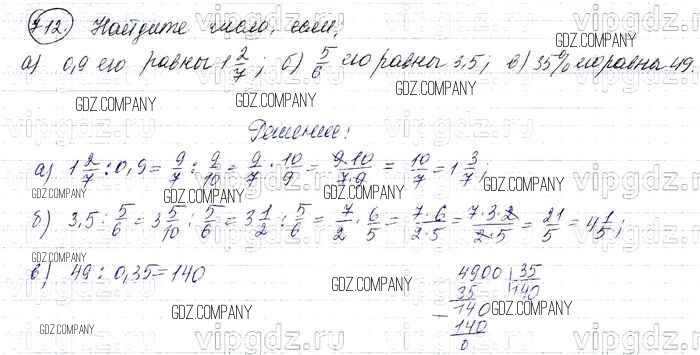 712. Найдите число, если:
а) 0,9 его равны 1 2/7; б) 5/6 его равны 3,5; в) 35% его равны 49.
GDZ.COMPANY GDZ.COMPANY GDZ.COMPANY
Решение:
а) 1 2/7 : 0,9 = 9/7 : 9/10 = 9/7 · 10/9 = 9·10/7·9 = 10/7 = 1 3/7;
GDZ.COMPANY GDZ.COMPANY GDZ.COMPANY
б) 3,5 : 5/6 = 3 5/10 : 5/6 = 3 1/2 : 5/6 = 7/2 · 6/5 = 7·6/2·5 = 7·3·2/2·5 = 21/5 = 4 1/5;
GDZ.COMPANY GDZ.COMPANY GDZ.COMPANY
в) 49 : 0,35 = 140
4900 | 35
35 | 140
140
140
0
GDZ.COMPANY GDZ.COMPANY GDZ.COMPANY
vipgdz.com